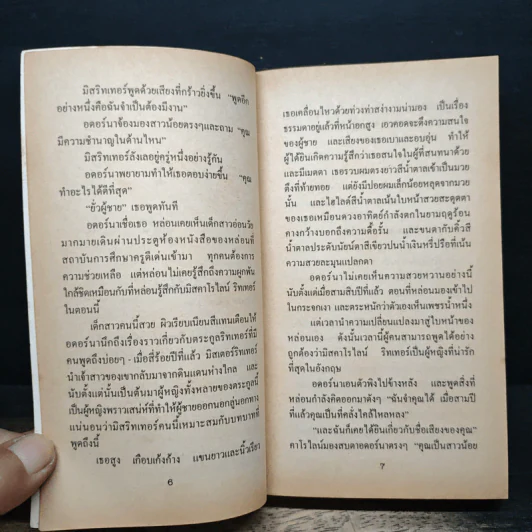 มิสริทเทอร์พูดด้วยเสียงที่กร้าวยิ่งขึ้น "พูดอีก
อย่างหนึ่งคือฉันจำเป็นต้องมีงาน"
อดอร์นาจ้องมองสาวน้อยตรงๆและถาม "คุณ
มีความชำนาญในด้านไหน"
มิสริทเทอร์ลังเลอยู่ครู่หนึ่งอย่างรู้กัน
อดอร์นาพยายามทำให้เธอตอบง่ายขึ้น "คุณ
ทำอะไรได้ดีที่สุด"
"ยั่วผู้ชาย" เธอพูดทันที
อดอร์นาเชื่อเธอ หล่อนเคยเห็นเด็กสาวอ่อนวัย
มากมายเดินผ่านประตูห้องหนังสือของหล่อนที่
สถาบันการศึกษาครูดีเด่นเข้ามา ทุกคนต้องการ
ความช่วยเหลือ แต่หล่อนไม่เคยรู้สึกถึงความผูกพัน
ใกล้ชิดเหมือนกับที่หล่อนรู้สึกกับมิสคาโรไลน์ ริทเทอร์
ในตอนนี้
เด็กสาวคนนี้สวย ผิวเรียบเนียนสีแทนเตือนให้
อดอร์นานึกถึงเรื่องราวเกี่ยวกับตระกูลริทเทอร์ที่มี
คนพูดถึงบ่อยๆ - เมื่อสี่ร้อยปีที่แล้ว มิสเตอร์ริทเทอร์
นำเจ้าสาวของเขากลับมาจากดินแดนห่างไกล และ
นับตั้งแต่นั้นเป็นต้นมาผู้หญิงทั้งหลายของตระกูลนี้
เป็นผู้หญิงพราวเสน่ห์ที่ทำให้ผู้ชายออกนอกลู่นอกทาง
แน่นอนว่ามิสริทเทอร์คนนี้เหมาะสมกับบทบาทที่
พูดถึงนี้
เธอสูง เกือบเก้งก้าง แขนยาวและนิ้วเรียว
6
เธอเคลื่อนไหวด้วยท่วงท่าสง่างามน่ามอง เป็นเรื่อง
ธรรมดาอยู่แล้วที่หน้าอกสูง เอวคอดจะดึงความสนใจ
ของผู้ชาย และเสียงของเธอเบาและอบอุ่น ทำให้
ผู้ได้ยินเกิดความรู้สึกว่าเธอสนใจในผู้ที่สนทนาด้วย
และมีเมตตา เธอรวบผมตรงยาวสีน้ำตาลเข้มเป็นมวย
ตึงที่ท้ายทอย แต่ยังมีปอยผมเล็กน้อยหลุดจากมวย
นั้น และไฮไลต์สีน้ำตาลเน้นใบหน้าสวยสะดุดตา
ของเธอเหมือนดวงอาทิตย์กำลังตกในยามฤดูร้อน
คางกว้างบอกถึงความดื้อรั้น และขนตากับคิ้วสี
น้ำตาลประดับนัยน์ตาสีเขียวปนน้ำเงินหรี่ปรือที่เน้น
ความสวยละมุนแปลกตา
อดอร์นาไม่เคยเห็นความสวยหวานอย่างนี้
นับตั้งแต่เมื่อสามสิบปีที่แล้ว ตอนที่หล่อนมองเข้าไป
ในกระจกเงา และตระหนักว่าตัวเองเห็นเพชรน้ำหนึ่ง
แต่เวลานำความเปลี่ยนแปลงมาสู่ใบหน้าของ
หล่อนเอง ดังนั้นเวลานี้ผู้คนสามารถพูดได้อย่าง
ถูกต้องว่ามิสคาโรไลน์ ริทเทอร์เป็นผู้หญิงที่น่ารัก
ที่สุดในอังกฤษ
อดอร์นาเอนตัวพิงไปข้างหลัง และพูดสิ่งที่
หล่อนกำลังคิดออกมาดังๆ "ฉันจำคุณได้ เมื่อสามปี
ที่แล้วคุณเป็นที่คลั่งไคล้ใหลหลง"
"และฉันก็เคยได้ยินเกี่ยวกับชื่อเสียงของคุณ"
คาโรไลน์มองสบตาอดอร์นาตรงๆ "คุณเป็นสาวน้อย
7